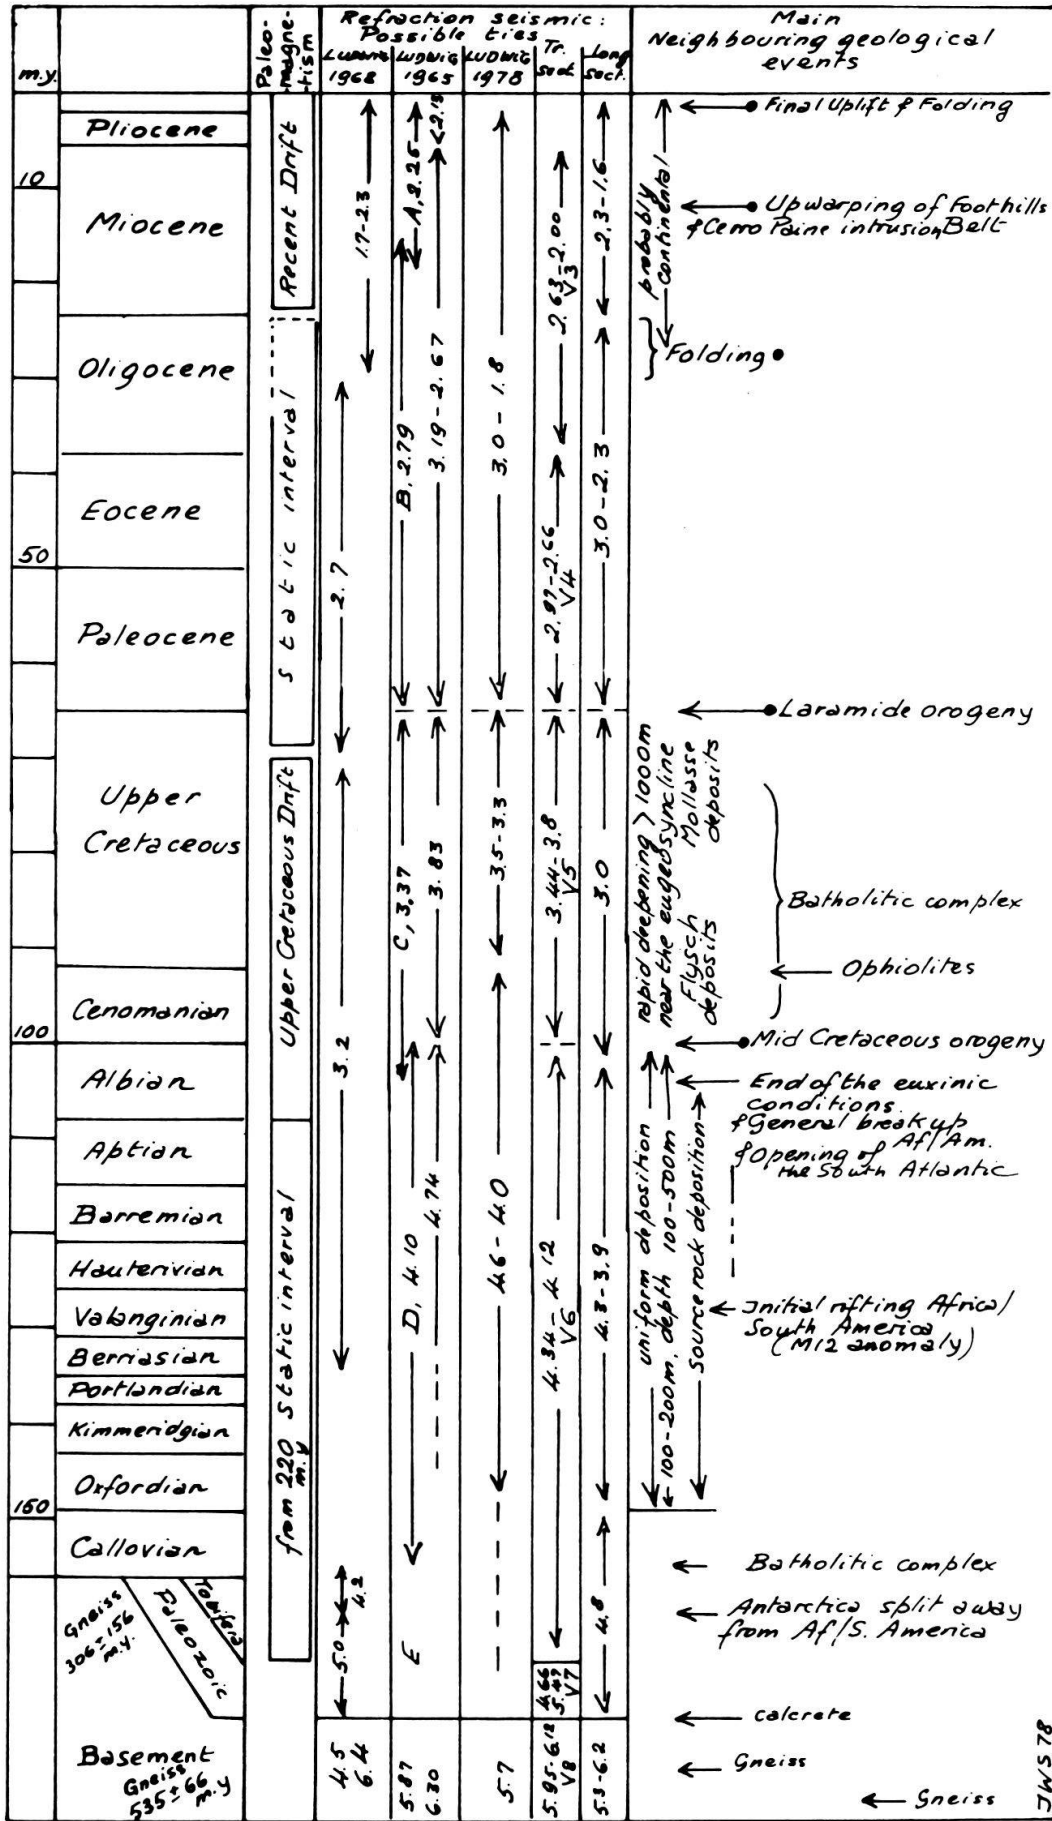 m.y.
Paleo-
-magne-
-tism
Refraction seismic:
Possible ties
LUDWIG
1968
LUDWIG
1965
LUDWIG
1978
Tr.
sect.
Long
sect.
Main
Neighbouring geological
events
10
50
100
150
Pliocene
Miocene
Oligocene
Eocene
Paleocene
Upper
Cretaceous
Cenomanian
Albian
Aptian
Barremian
Hauterivian
Valanginian
Berriasian
Portlandian
Kimmeridgian
Oxfordian
Callovian
Gneiss
306±156
m.y.
Paleozoic
Tobifera
Basement
Gneiss
535±66
m.y
Recent Drift
Static interval
Upper Cretaceous Drift
from 220 static interval
m.y
1.7-2.3
2.7
3.2
4.2
5.0
4.5
6.4
A, 2.25
B, 2.79
C, 3.37
D, 4.10
E
<2.15
3.19-2.67
3.83
4.74
5.87
6.30
3.0-1.8
3.5-3.3
4.6-4.0
5.7
2.63-2.00
V3
2.97-2.66
V4
3.44-3.8
V5
4.34-4.12
V6
4.66
5.49
V7
5.95-6.12
V8
2.3-1.6
3.0-2.3
3.0
4.3-3.9
4.8
5.3-6.2
probably
continental
Final Uplift & Folding
Upwarping of Foothills
& Cerro Paine intrusion Belt
Folding
Laramide orogeny
rapid deepening >1000m
near the eugeosyncline
Flysch
deposits
Mollasse
deposits
Batholitic complex
Ophiolites
Mid Cretaceous orogeny
End of the euxinic
conditions
& General break up
Af/Am.
& Opening of
the South Atlantic
uniform deposition
100-200m. depth 100-500m
Source rock deposition
Initial rifting Africa/
South America
(M12 anomaly)
Batholitic complex
Antarctica split away
from Af/S. America
calcrete
Gneiss
Gneiss
JWS 78